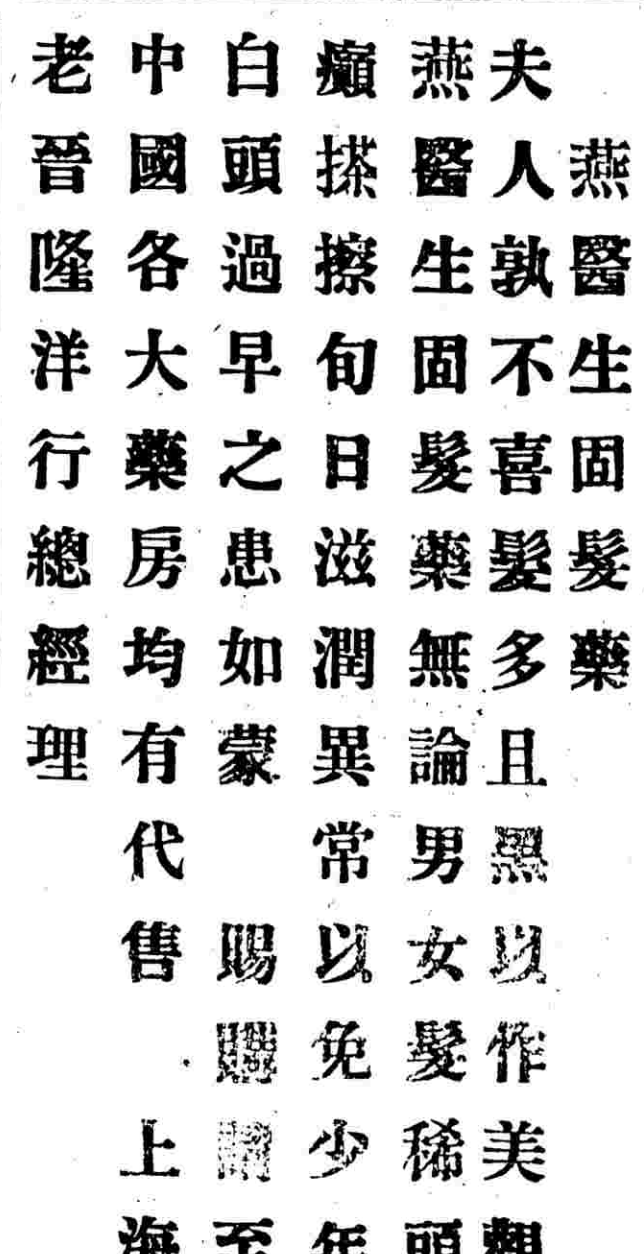 燕醫生固髮藥
夫人孰不喜髮多且黑以作美觀
燕醫生固髮藥無論男女髮稀頭
癩搽擦旬日滋潤異常以免少年
白頭過早之患如蒙 賜 至
中國各大藥房均有代售 上海
老晉隆洋行總經理